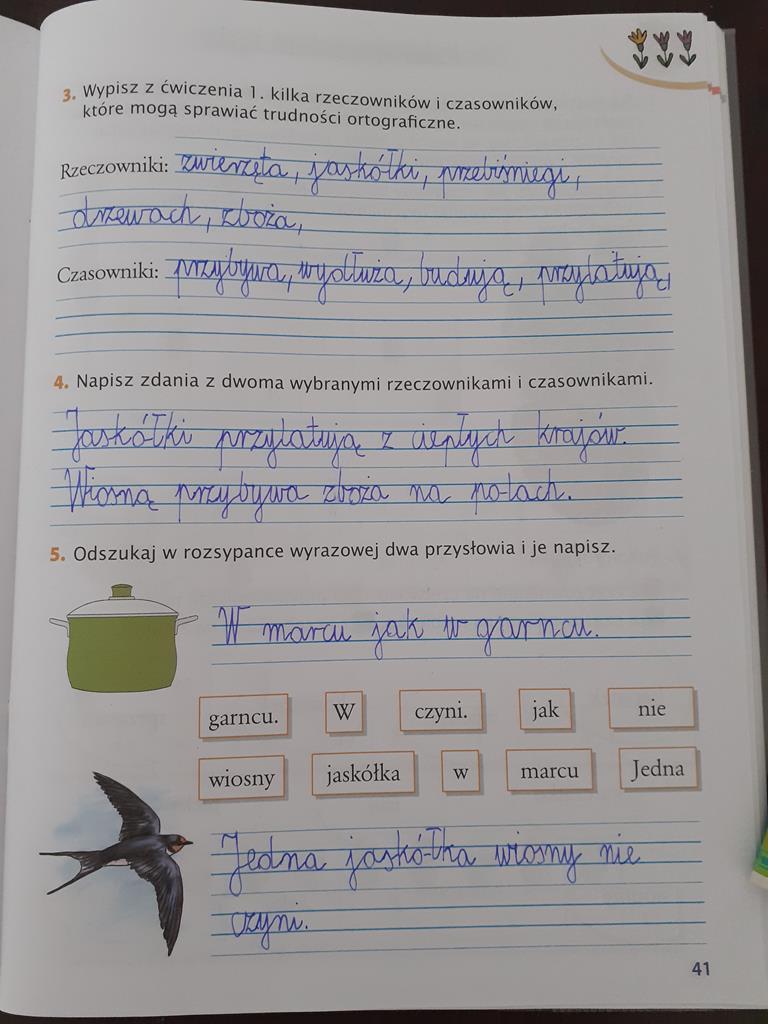 3. Wypisz z ćwiczenia 1. kilka rzeczowników i czasowników,
które mogą sprawiać trudności ortograficzne.
Rzeczowniki: zwierzęta, jaskółki, przebiśniegi,
drzewach, zboża,
Czasowniki: przybywa, wydłuża, budują, przylatują,
4. Napisz zdania z dwoma wybranymi rzeczownikami i czasownikami.
Jaskółki przylatują z ciepłych krajów.
Wiosną przybywa zboża na polach.
5. Odszukaj w rozsypance wyrazowej dwa przysłowia i je napisz.
W marcu jak w garncu.
garncu. W czyni. jak nie
wiosny jaskółka w marcu Jedna
Jedna jaskółka wiosny nie
czyni.
41